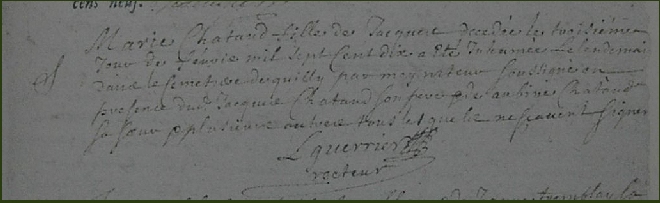 cens neuf.
Marie Chataud fille de Jacques decedée le troisieme
Jour de fevrie mil sept cent dix a eté Inhumée le lendemai
dans le semetiere de quilly par moy recteur soussigné en
presence dud. Jacques Chataud son pere et de Chataud
sa sœur et plusieurs autres tous lesquels ne scavent signer
L guerrier
recteur